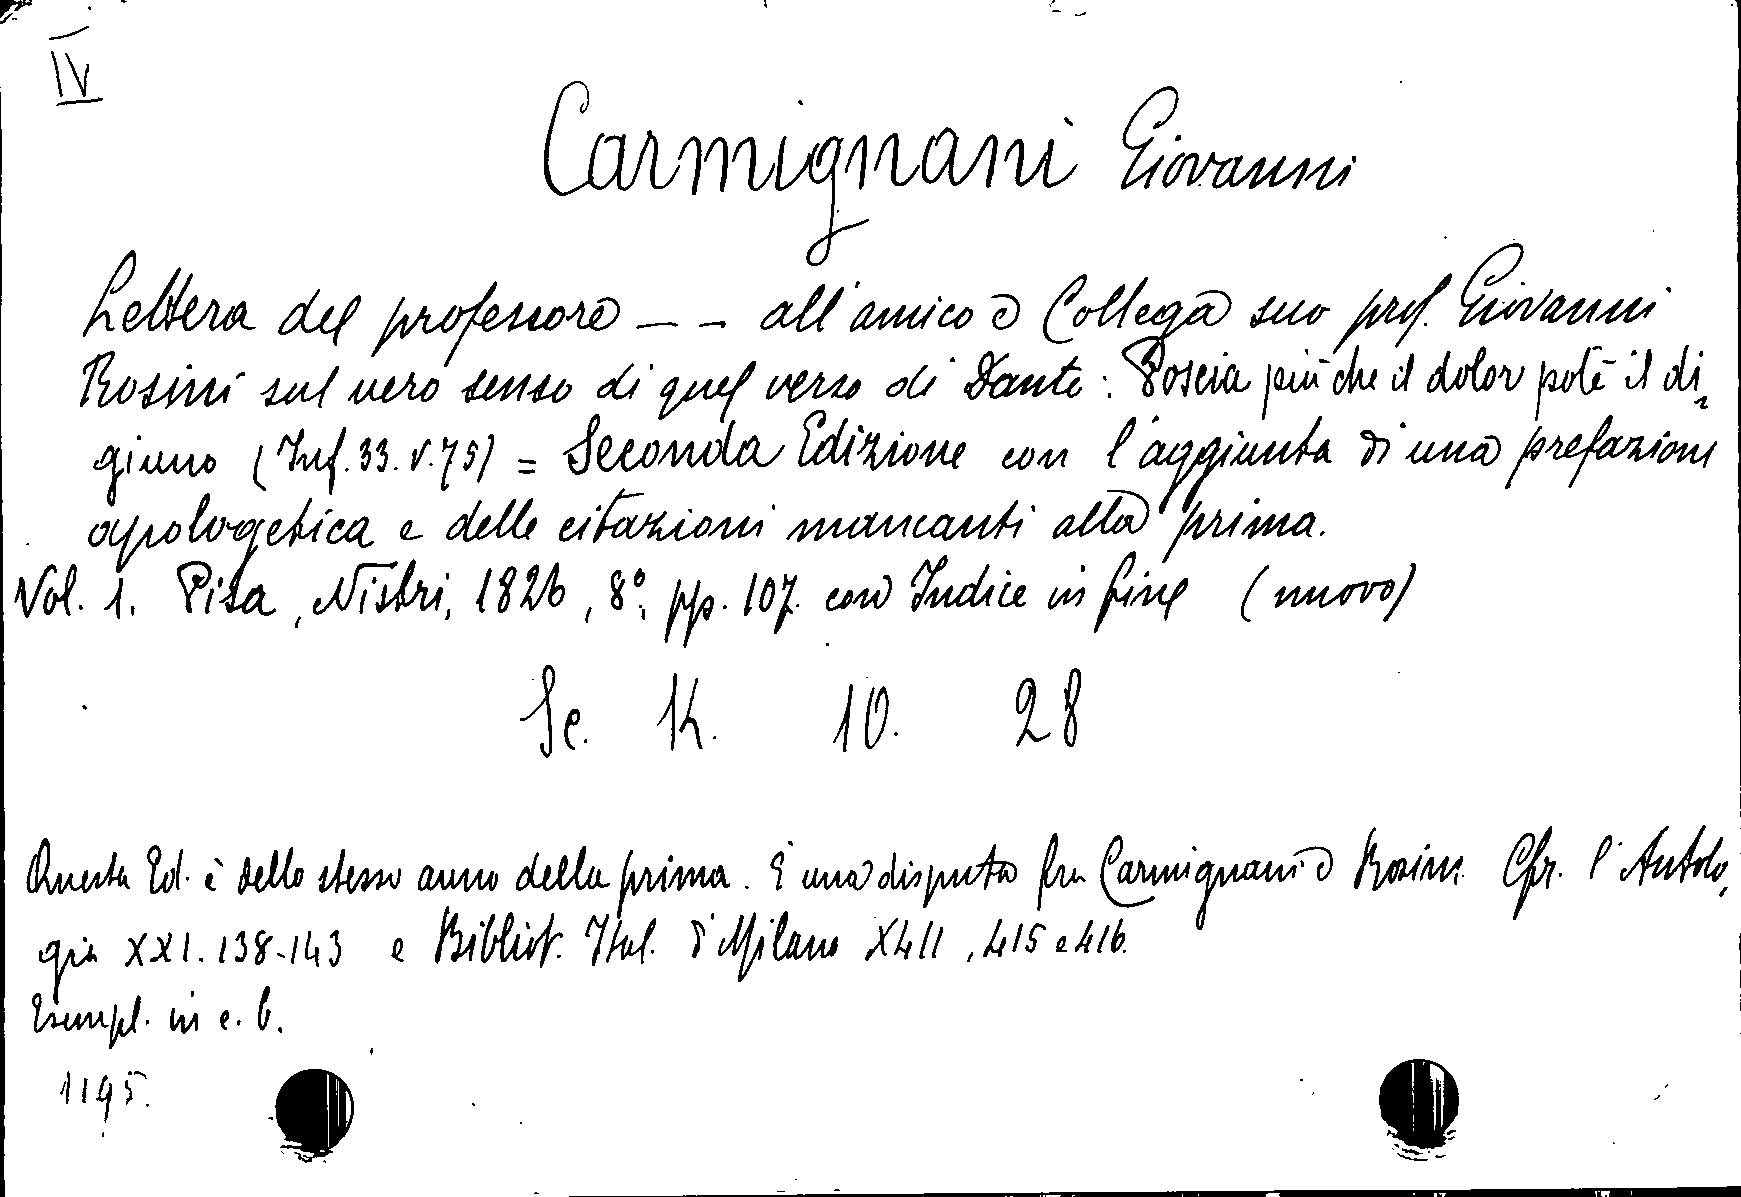 IV
Carmignani Giovanni
Lettera del professore _ _ all'amico e Collega suo prof. Giovanni
Rosini sul vero senso di quel verso di Dante: Poscia più che il dolor potè il di-
giuno (Inf. 33. v. 75) = Seconda Edizione con l'aggiunta di una prefazione
apologetica e delle citazioni mancanti alla prima.
Vol. 1. Pisa, Nistri, 1826, 8°, pp. 107. con Indice in fine (nuovo)
Sc. K. 10. 28
Questa Ed. è dello stesso anno della prima. È una disputa fra Carmignani e Rosini. Cfr. l'Antolo-
gia XXI. 138-143 e Bibliot. Ital. di Milano XLII, 415 e 416.
Esempl. in c. b.
1195.